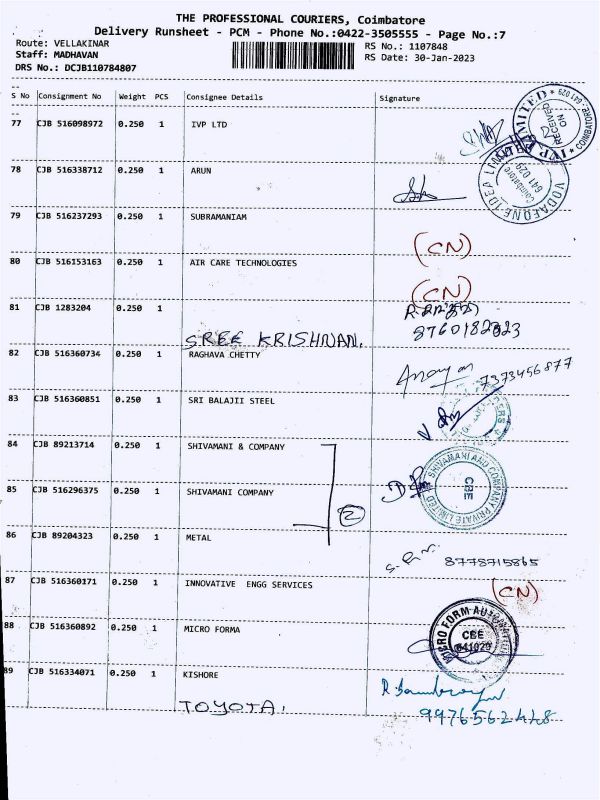 THE PROFESSIONAL COURIERS, Coimbatore
Delivery Runsheet - PCM - Phone No.:0422-3505555 - Page No.:7
Route: VELLAKINAR
RS No.: 1107848
Staff: MADHAVAN
RS Date: 30-Jan-2023
DRS No.: DCJB110784807
S No Consignment No Weight PCS Consignee Details Signature
77 CJB 516098972 0.250 1 IVP LTD
IVP LIMITED
RECEIVED ON
COIMBATORE - 641 029
78 CJB 516338712 0.250 1 ARUN
VODAFONE IDEA LIMITED
Coimbatore
641 029
79 CJB 516237293 0.250 1 SUBRAMANIAM
(CN)
80 CJB 516153163 0.250 1 AIR CARE TECHNOLOGIES
(CN)
81 CJB 1283204 0.250 1
SREE KRISHNAN.
8760182323
82 CJB 516360734 0.250 1 RAGHAVA CHETTY
7373456877
83 CJB 516360851 0.250 1 SRI BALAJII STEEL
84 CJB 89213714 0.250 1 SHIVAMANI & COMPANY
SHIVAMANI AND COMPANY PRIVATE LIMITED
CBE
85 CJB 516296375 0.250 1 SHIVAMANI COMPANY
2
86 CJB 89204323 0.250 1 METAL
8778715865
87 CJB 516360171 0.250 1 INNOVATIVE ENGG SERVICES
(CN)
88 CJB 516360892 0.250 1 MICRO FORMA
MICRO FORM AUTOMATION
CBE
641029
89 CJB 516334071 0.250 1 KISHORE
TOYOTA.
9976562428